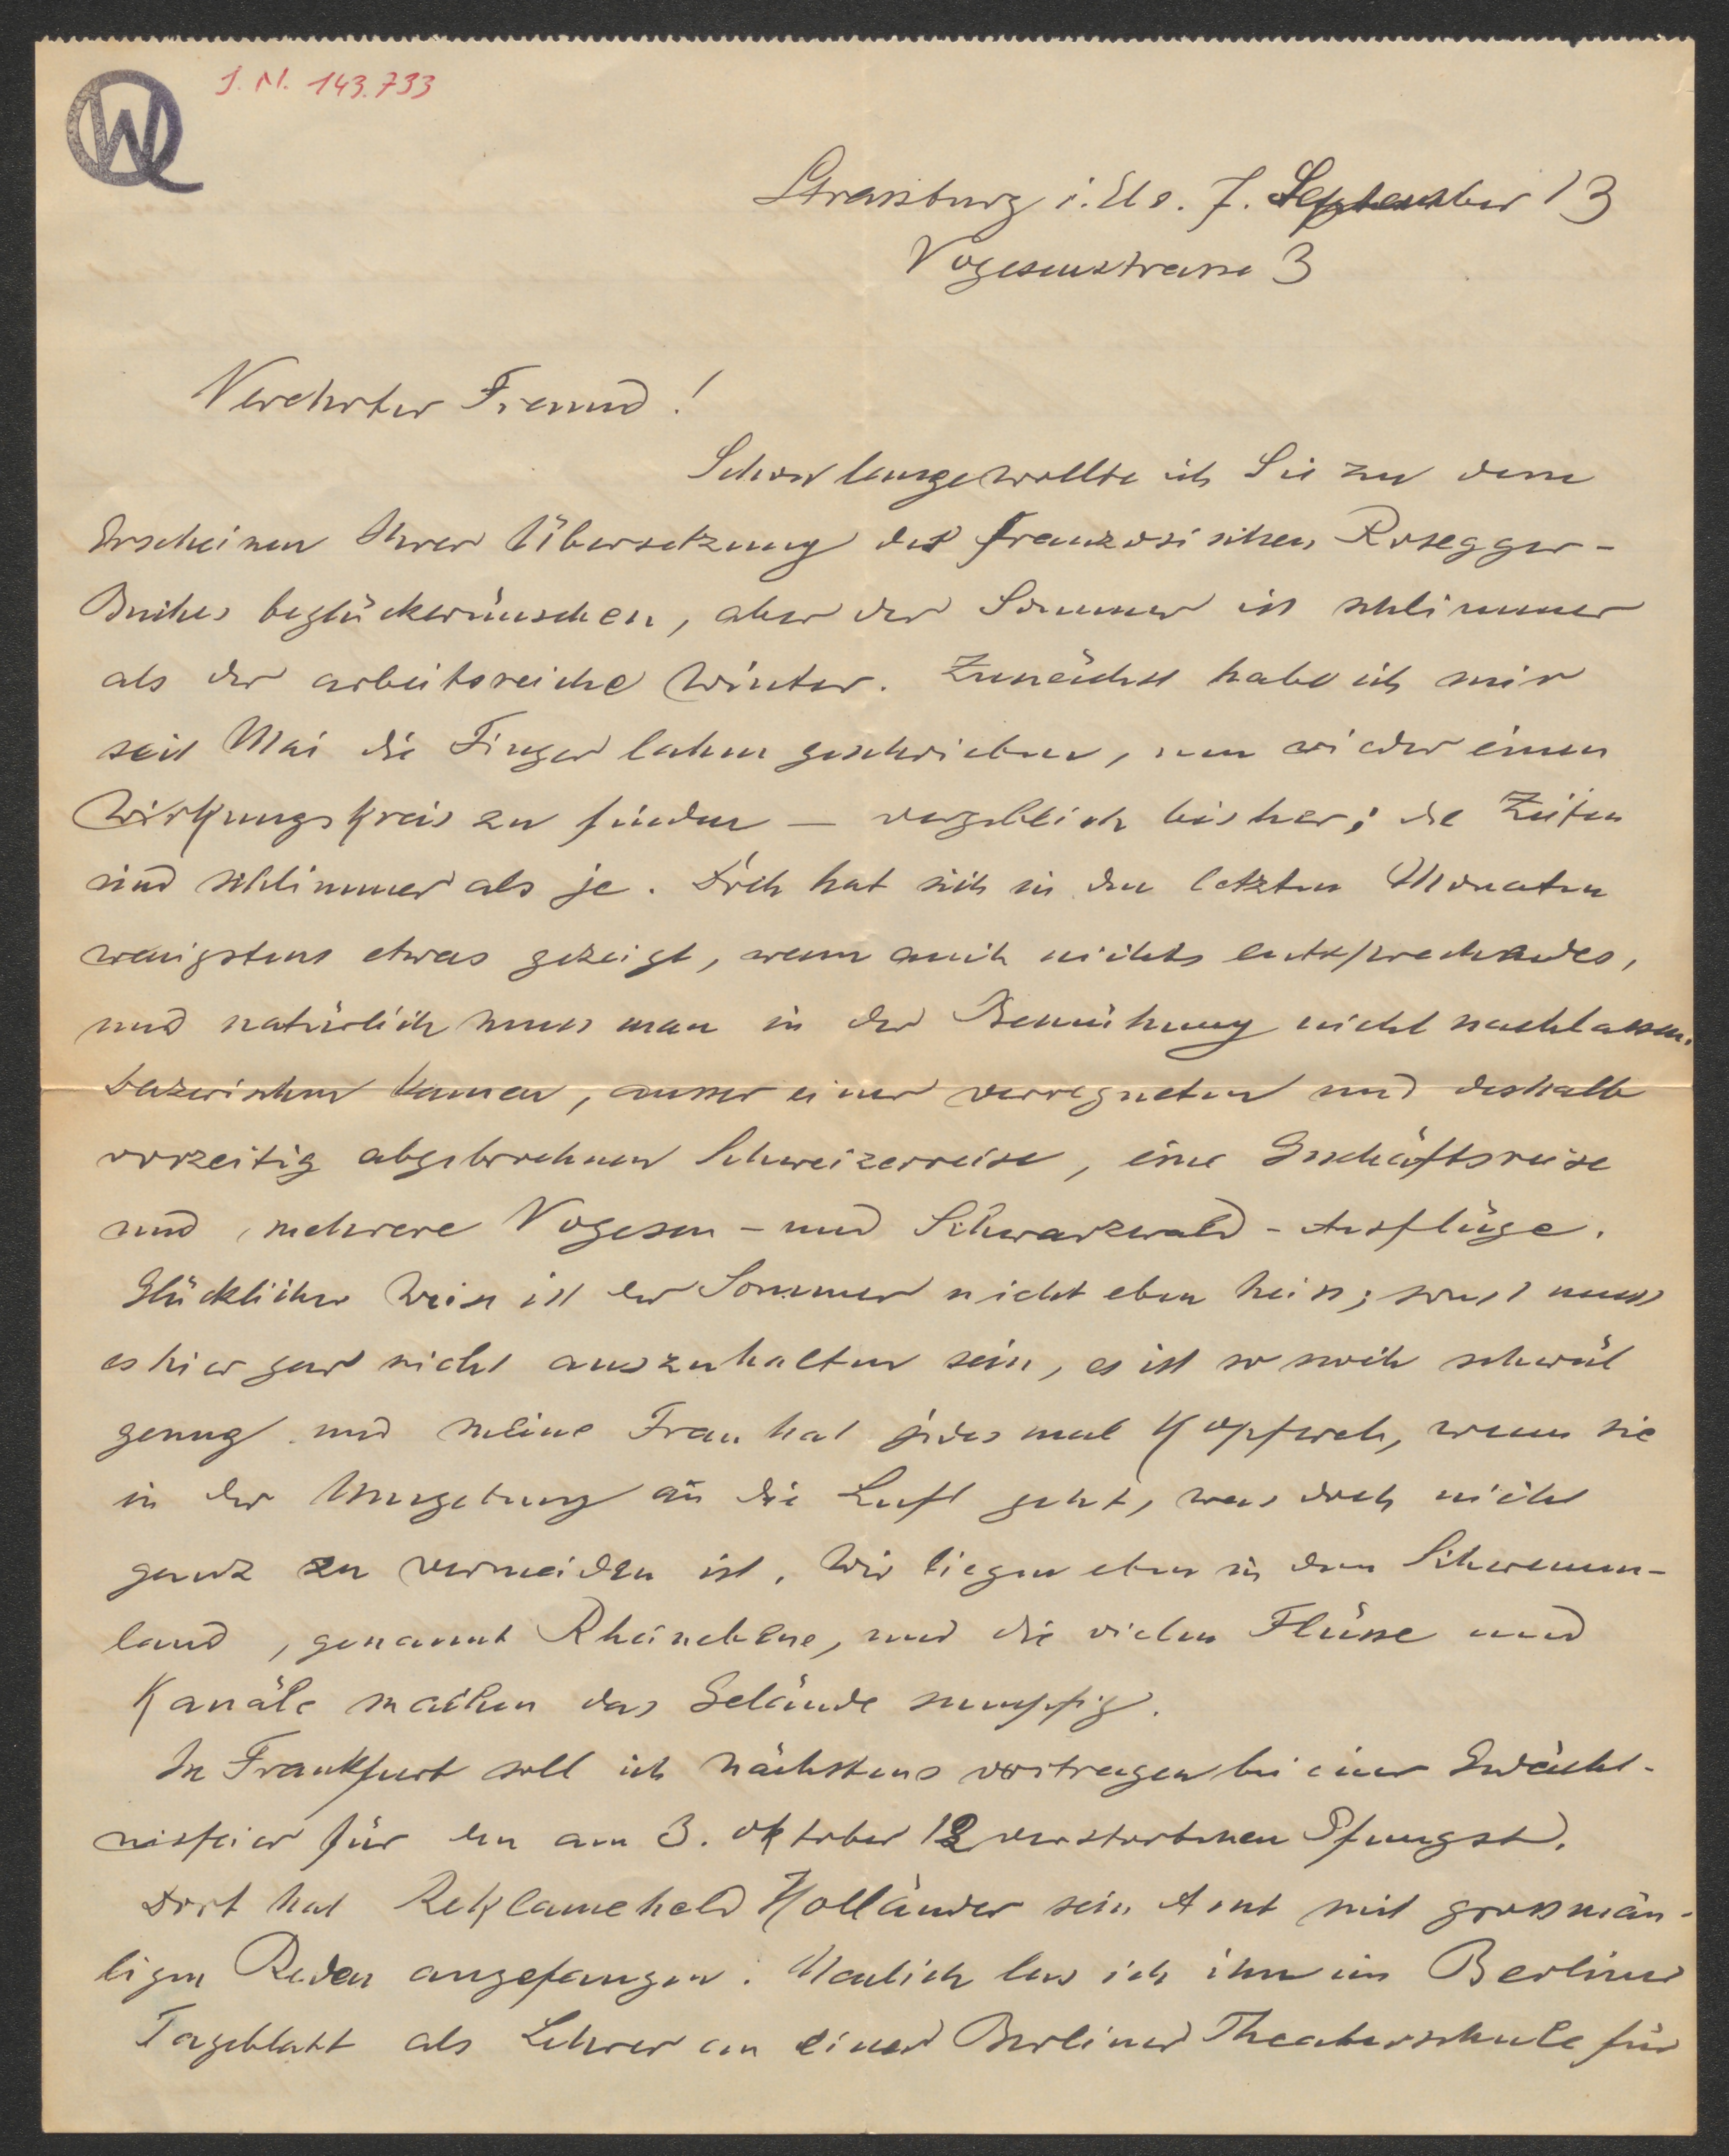 J. N. 143.733
W
Strassburg i. Els. 7. September 13
Vogesenstrasse 3
Verehrter Freund!
Schon lange wollte ich Sie zu dem
Erscheinen Ihrer Übersetzung des französischen Rosegger-
Buches beglückwünschen, aber der Sommer ist schlimmer
als der arbeitsreiche Winter. Zunächst habe ich mir
seit Mai die Finger lahm geschrieben, um wieder einen
Wirkungskreis zu finden — vergeblich bisher; die Zeiten
sind schlimmer als je. Doch hat sich in den letzten Monaten
wenigstens etwas gezeigt, wenn auch nichts entsprechendes,
und natürlich muss man in der Bemühung nicht nachlassen.
Dazwischen kamen, ausser einer verregneten und deshalb
vorzeitig abgebrochnen Schweizerreise, eine Geschäftsreise
und mehrere Vogesen- und Schwarzwald-Ausflüge.
Glücklicher Weise ist der Sommer nicht eben heiss; sonst muss
es hier gar nicht auszuhalten sein, es ist so noch schwül
genug und meine Frau hat jedes mal Kopfweh, wenn sie
in der Umgebung an die Luft geht, was doch nicht
ganz zu vermeiden ist. Wir liegen eben in dem Schwemm-
land, genannt Rheinebene, und die vielen Flüsse und
Kanäle machen das Gelände sumpfig.
In Frankfurt soll ich nächstens vortragen bei einer Gedächt-
nisfeier für den am 3. Oktober 12 verstorbenen Pfungst.
Dort hat Reklameheld Holländer sein Amt mit grossmäu-
ligen Reden angefangen. Neulich las ich ihn im Berliner
Tageblatt als Lehrer an einer Berliner Theaterschule für